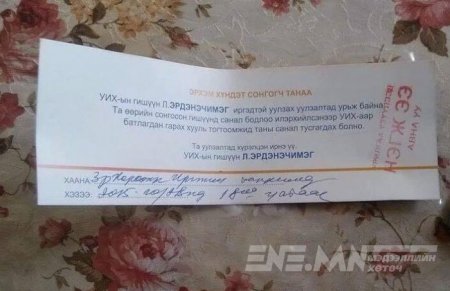 ЭРХЭМ ХҮНДЭТ СОНГОГЧ ТАНАА
УИХ-ын гишүүн Л.ЭРДЭНЭЧИМЭГ иргэдтэй уулзах уулзалтад урьж байна.
Та өөрийн сонгосон гишүүнд санал бодлоо илэрхийлснээр УИХ-аар
батлагдан гарах хууль тогтоомжид таны санал тусгагдах болно.
Та уулзалтад хүрэлцэн ирнэ үү.
УИХ-ын гишүүн Л.ЭРДЭНЭЧИМЭГ
ХААНА: 3-р хорооны Иргэний танхимд
ХЭЗЭЭ: 2015.
ENE.MN МЭДЭЭЛЛИЙН
хөтөч